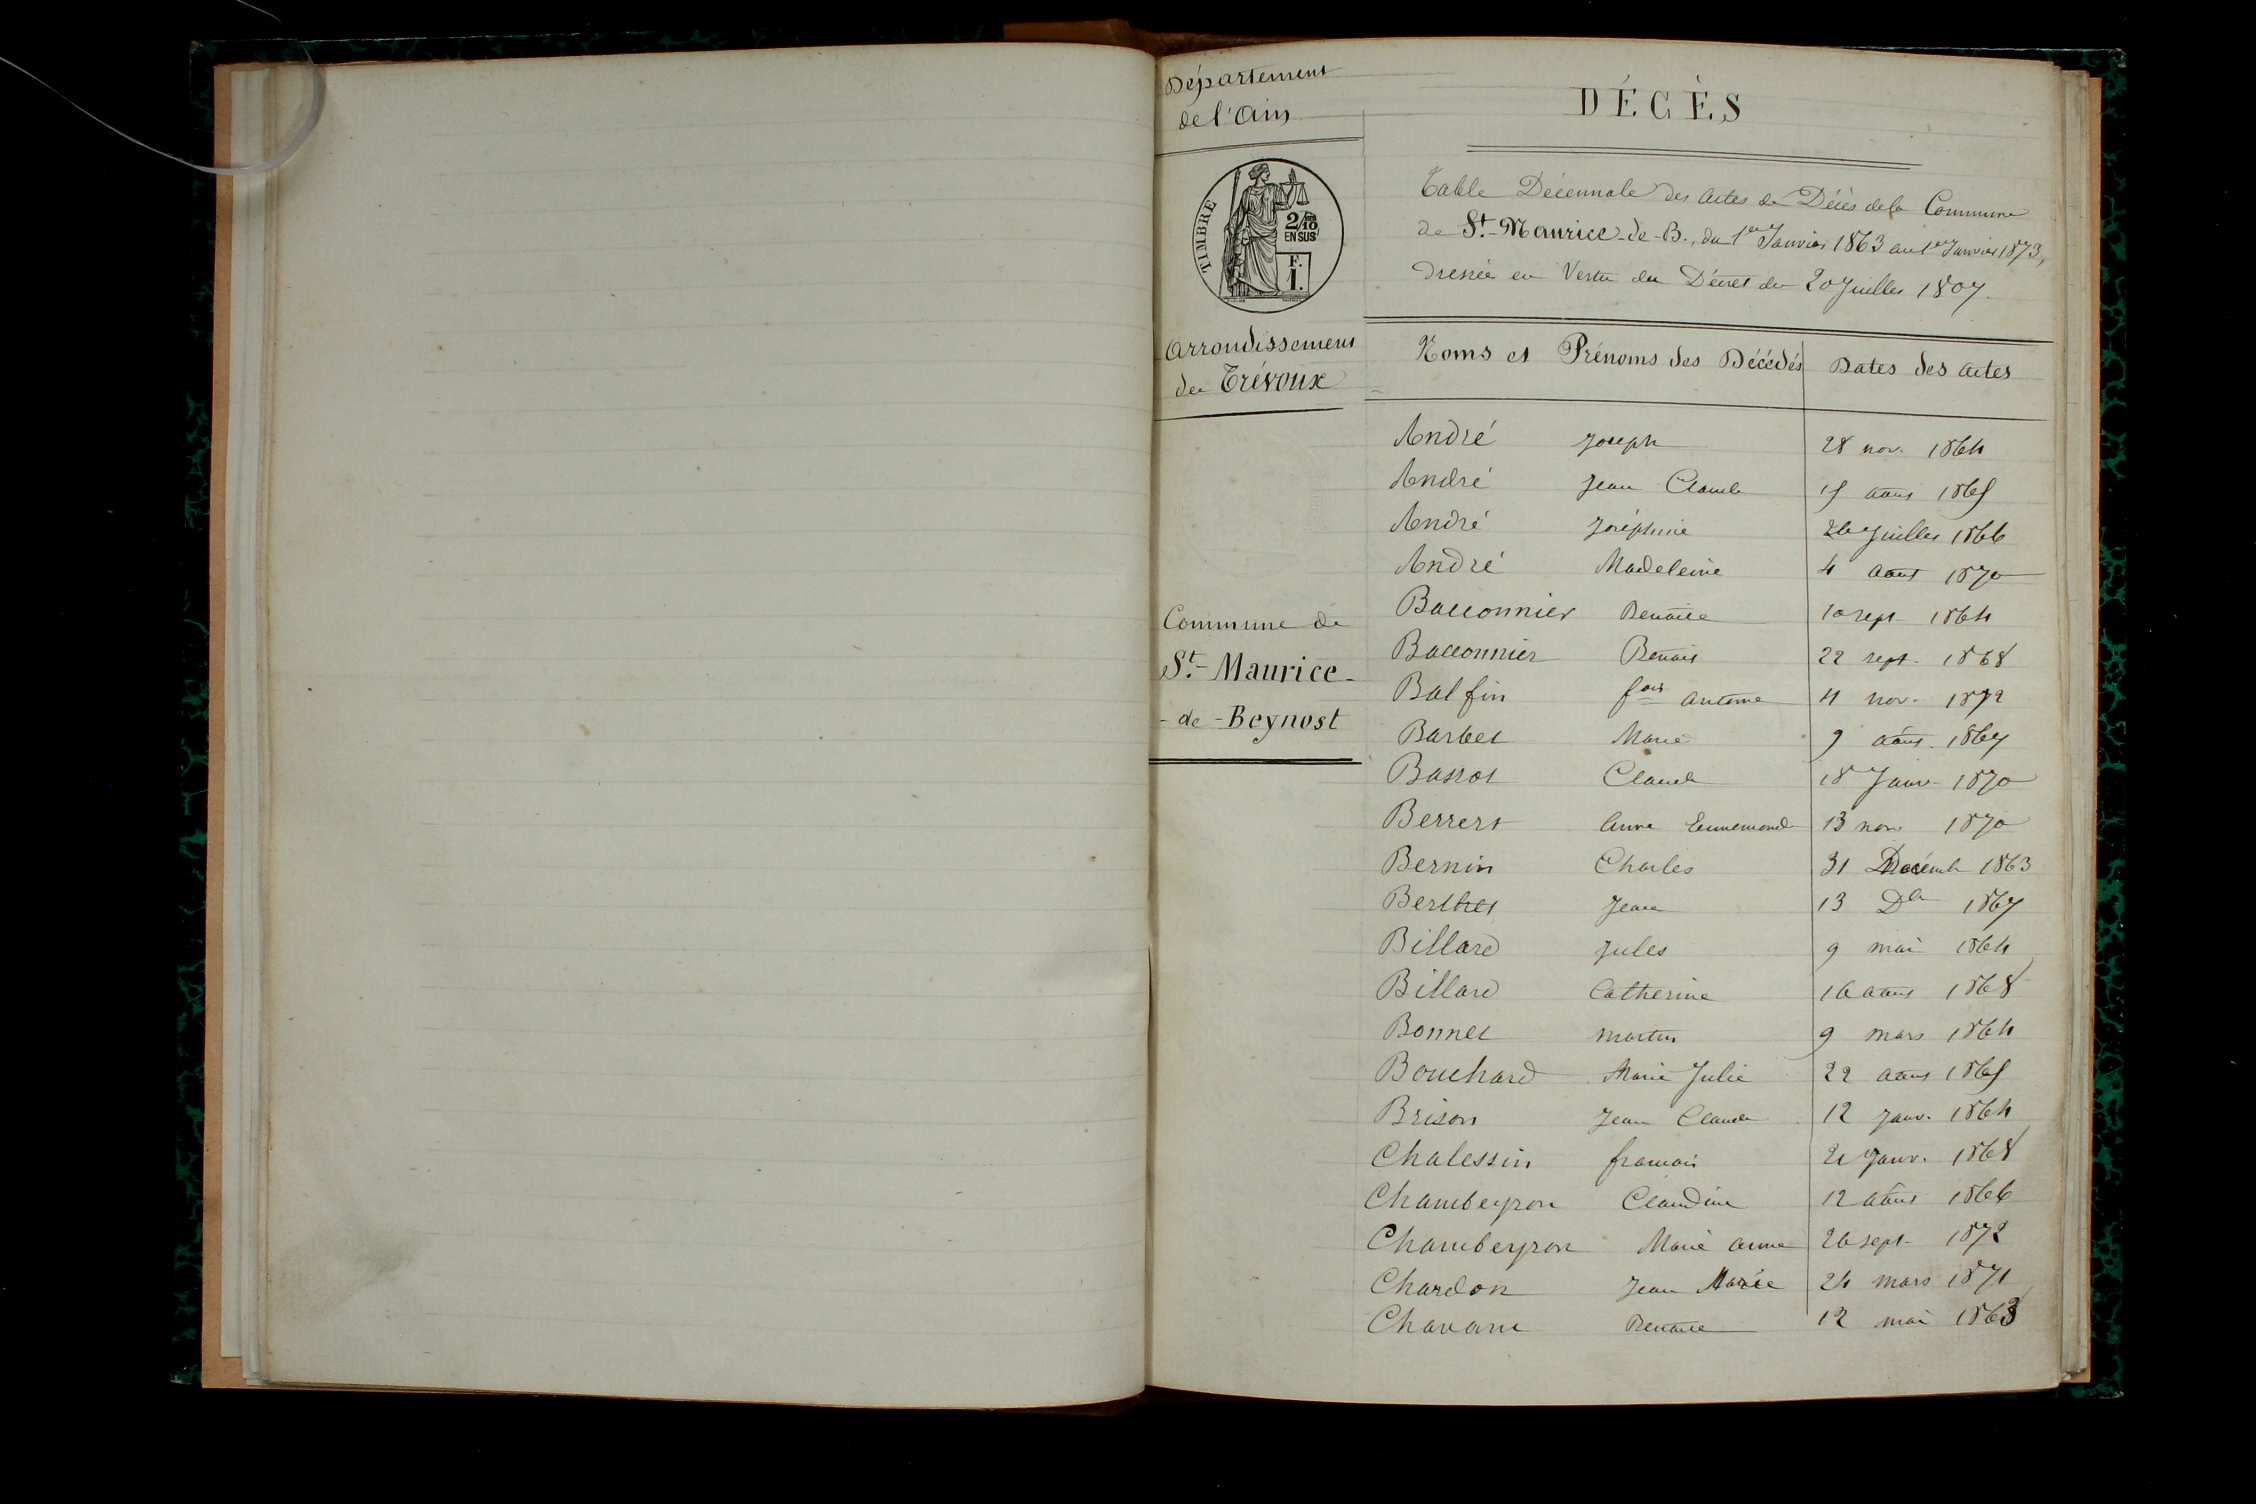 Département
de l'Ain
TIMBRE
2/10
EN SUS
F.
1.
Arrondissement
de Trévoux
Commune de
St.-Maurice-
- de - Beynost
DÉCÈS
Table Décennale des Actes de Décès de la Commune
de St.-Maurice-de-B., du 1er Janvier 1863 au 1er Janvier 1873,
dressée en Vertu du Décret du 20 Juillet 1807.
Noms et Prénoms des Décédés Dates des Actes
André Joseph 28 nov. 1864
André Jean Claude 15 août 1865
André Joséphine 26 Juillet 1866
André Madeleine 4 août 1870
Bacconnier Benoîte 10 sept 1864
Bacconnier Benoit 22 sept. 1868
Balfin fois antoine 4 nov. 1872
Barbet Marie 9 août. 1867
Bassot Claude 18 Janv. 1870
Berrert Anne Ennemond 13 nov 1870
Bernin Charles 31 Décemb 1863
Berthet Jean 13 1867
Billard Jules 9 mai 1864
Billard Catherine 16 août 1868
Bonnet martin 9 mars 1864
Bouchard Marie Julie 22 août 1865
Brison Jean Claude 12 janv. 1864
Chalessin francois 21 Janv. 1868
Chambeyron Claudine 12 août 1866
Chambeyron Marie anne 26 sept. 1872
Chardon Jean Marie 24 mars 1871
Chavant Benoîte 12 mai 1863